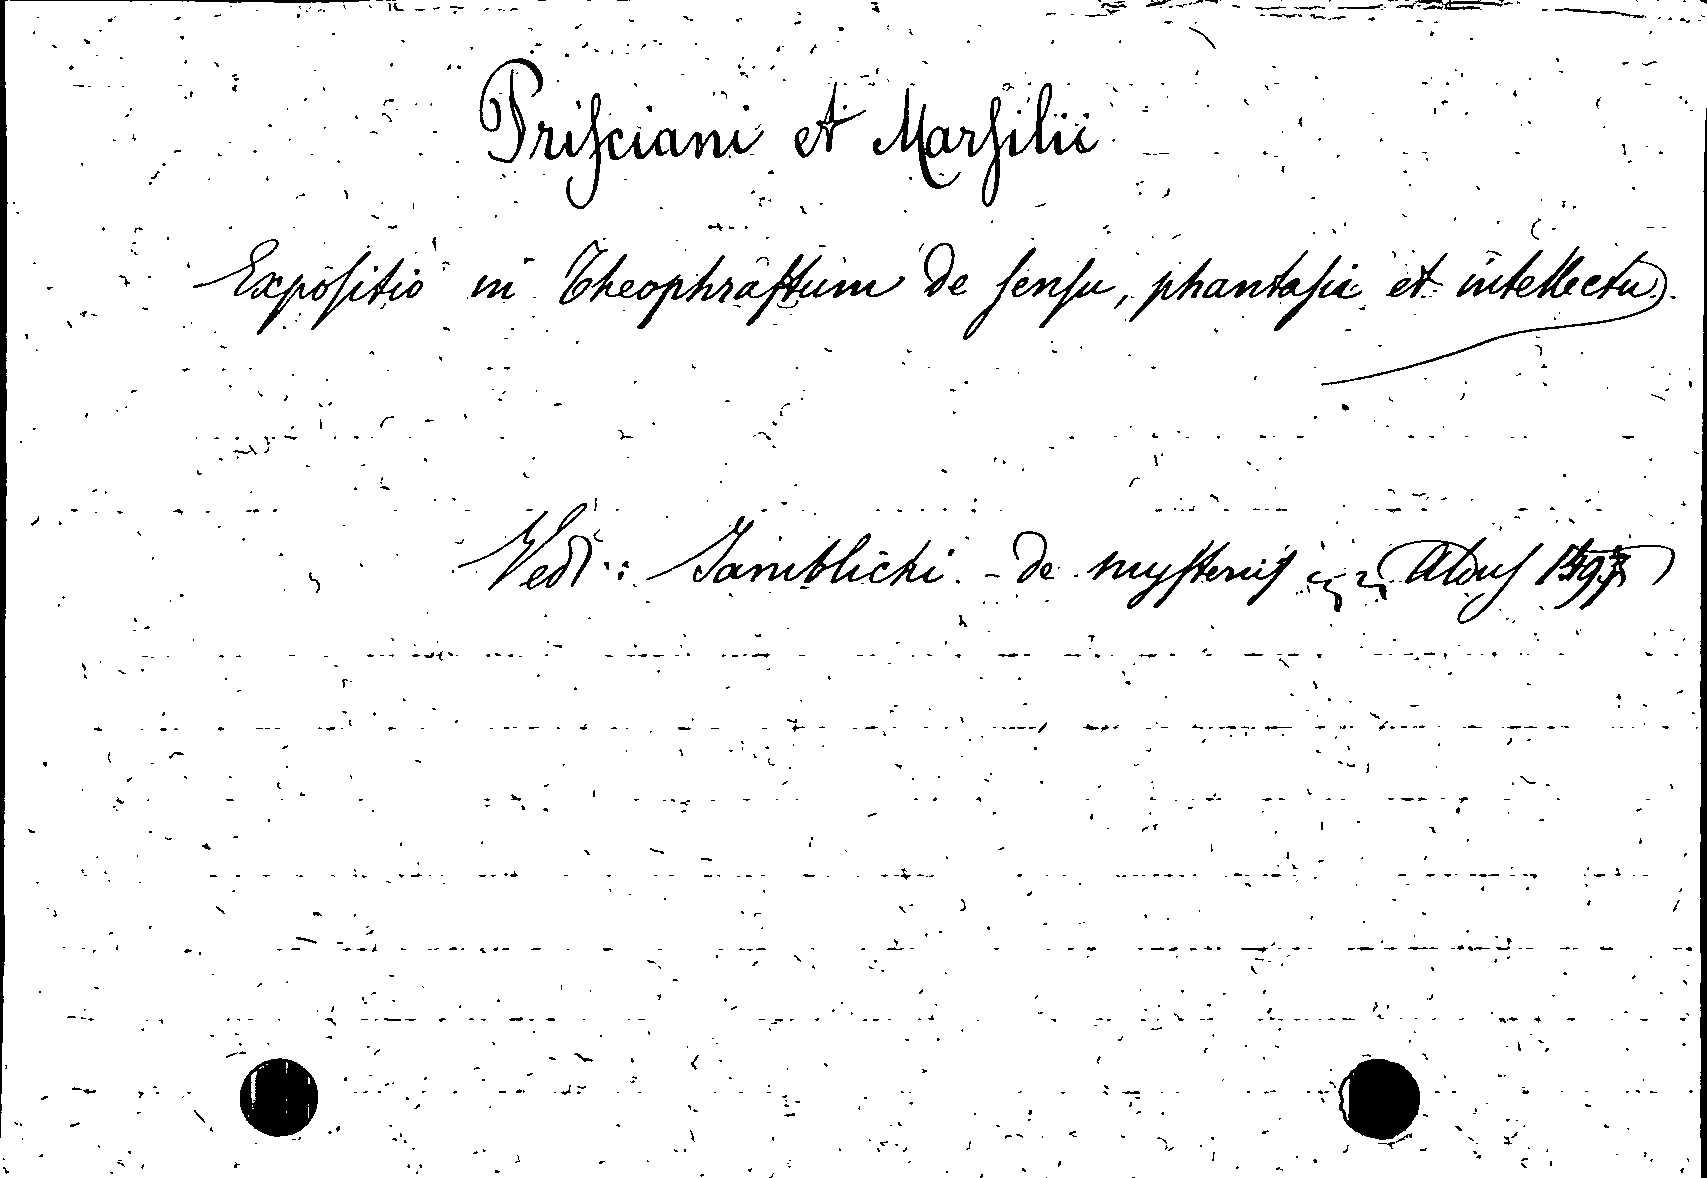 Priſciani et Marſilii
Expoſitio in Theophraſtum de ſenſu, phantaſia et intellectu.
Vedi: Jamblichi - de myſteriis Aldus 1497